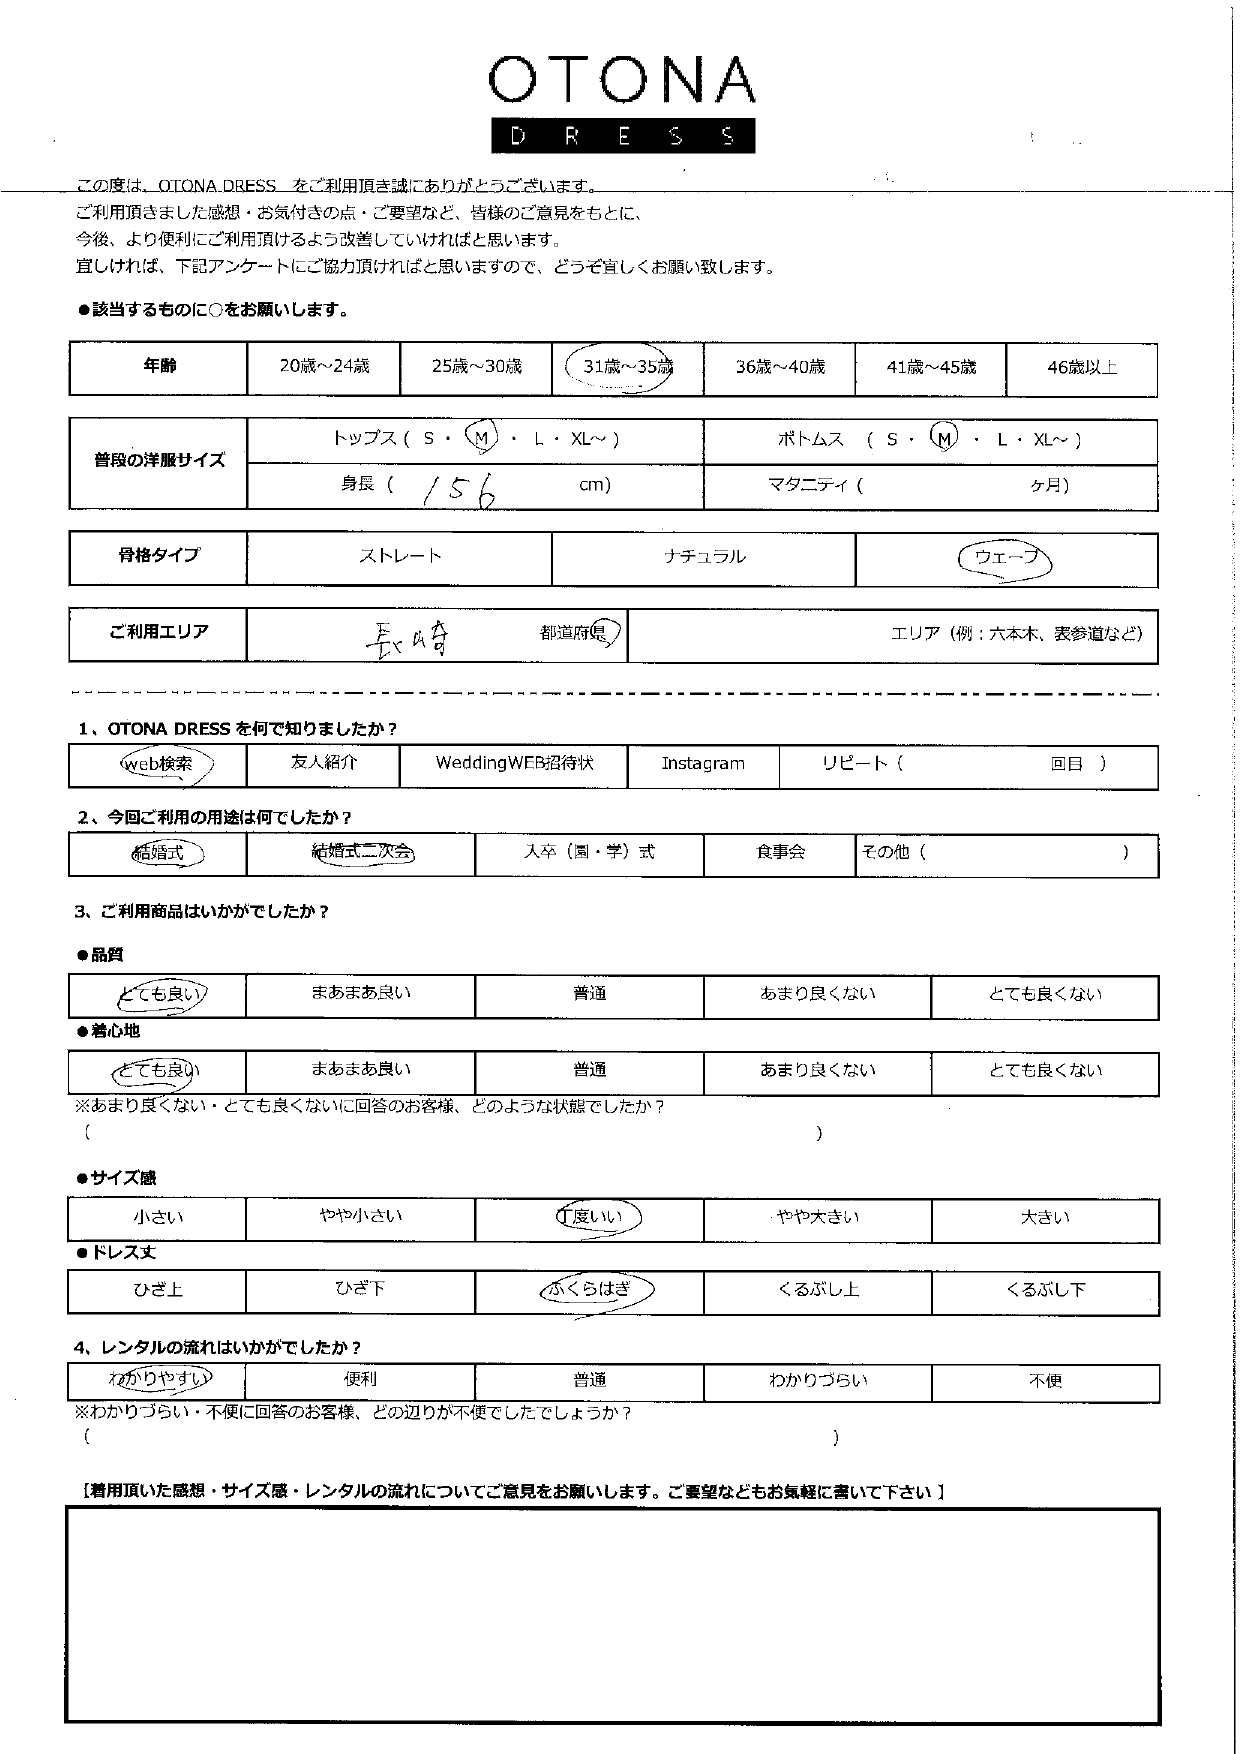 OTONA
DRESS
この度は、OTONA DRESS をご利用頂き誠にありがとうございます。
ご利用頂きました感想・お気付きの点・ご要望など、皆様のご意見をもとに、
今後、より便利にご利用頂けるよう改善していければと思います。
宜しければ、下記アンケートにご協力頂ければと思いますので、どうぞ宜しくお願い致します。
●該当するものに○をお願いします。
年齢 20歳～24歳 25歳～30歳 31歳～35歳 36歳～40歳 41歳～45歳 46歳以上
普段の洋服サイズ トップス ( S ・ M ・ L ・ XL～ ) ボトムス ( S ・ M ・ L ・ XL～ )
身長 ( 156 cm) マタニティ ( ヶ月)
骨格タイプ ストレート ナチュラル ウェーブ
ご利用エリア 長崎 都道府県 エリア（例：六本木、表参道など）
1、OTONA DRESS を何で知りましたか？
web検索 友人紹介 WeddingWEB招待状 Instagram リピート ( 回目 )
2、今回ご利用の用途は何でしたか？
結婚式 結婚式二次会 入卒（園・学）式 食事会 その他 ( )
3、ご利用商品はいかがでしたか？
●品質
とても良い まあまあ良い 普通 あまり良くない とても良くない
●着心地
とても良い まあまあ良い 普通 あまり良くない とても良くない
※あまり良くない・とても良くないに回答のお客様、どのような状態でしたか？
( )
●サイズ感
小さい やや小さい 丁度いい やや大きい 大きい
●ドレス丈
ひざ上 ひざ下 ふくらはぎ くるぶし上 くるぶし下
4、レンタルの流れはいかがでしたか？
わかりやすい 便利 普通 わかりづらい 不便
※わかりづらい・不便に回答のお客様、どの辺りが不便でしたでしょうか？
( )
【着用頂いた感想・サイズ感・レンタルの流れについてご意見をお願いします。ご要望などもお気軽に書いて下さい 】